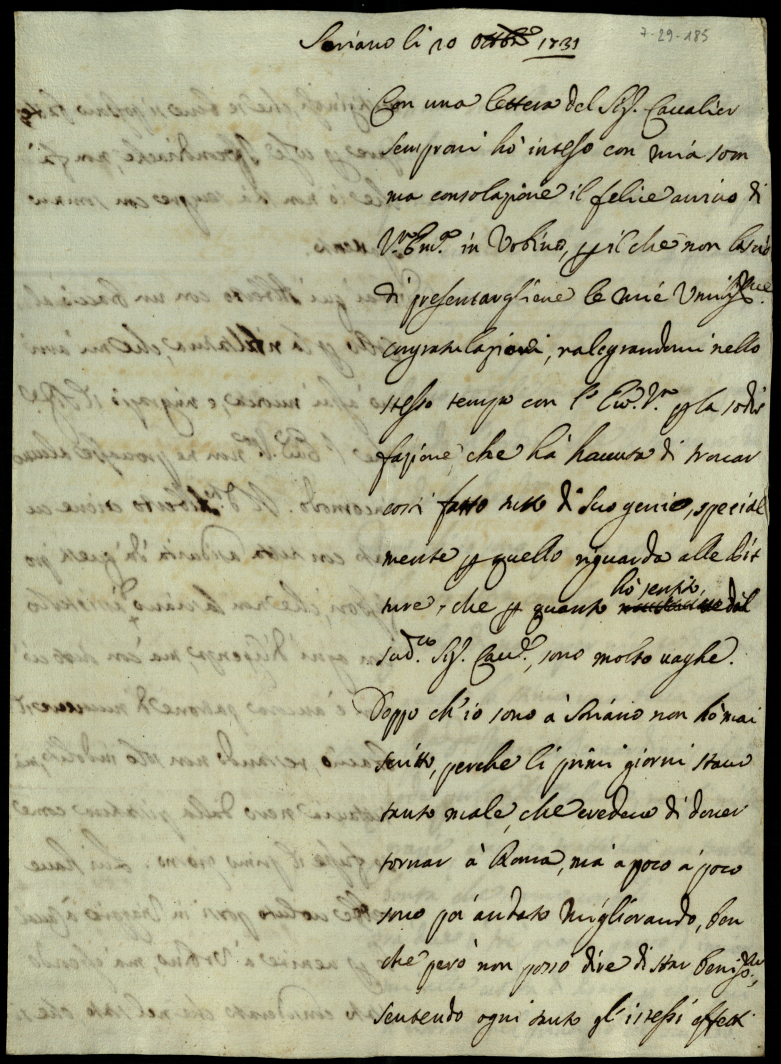 7-29-185
Soriano li 20 Ottobre 1731
Con una lettera del Sig.r Cavalier
Semproni hò inteso con mia som
ma consolazione il felice arrivo di
V.ra Em.za in Urbino, p il che non lascio
di presentargliene le mie Umiss.me
congratulazioni, ralegrandomi nello
stesso tempo con l' Em. V.ra p la sodis
fazione, che hà havuta di trovar
così fatto tutto di suo genio, special
mente p quello riguarda alle Pit
ture, che p quanto hò sentito dal
sud.o Sig.r Cav.re, sono molto vaghe.
Doppo ch'io sono à Soriano non hò mai
scritto, perche li primi giorni stavo
tanto male, che credevo di dover
tornar à Roma, mà à poco à poco
sono poi andato migliorando, ben
che però non posso dire di star beniss.mo,
sentendo ogni tanto gl'istessi effetti